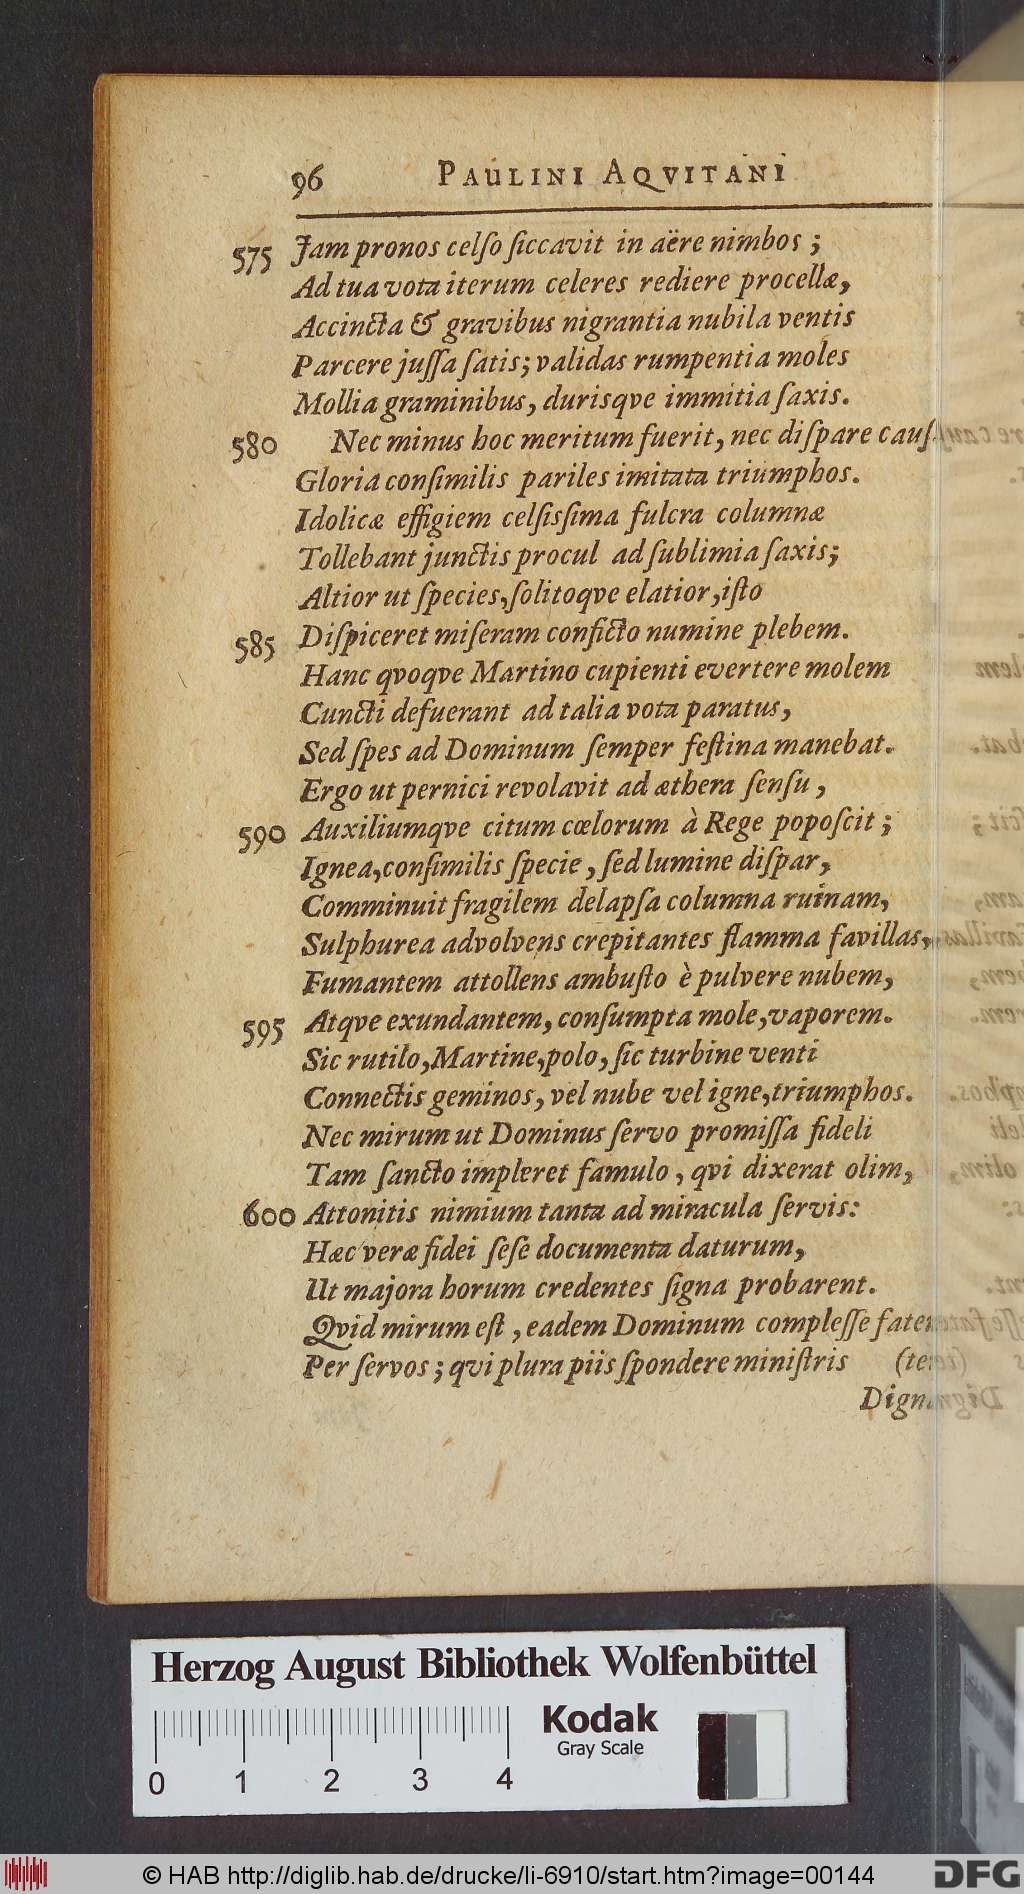 96 PAULINI AQVITANI
575 Jam pronos celſo ſiccavit in aëre nimbos ;
Ad tua vota iterum celeres rediere procellæ,
Accincta & gravibus nigrantia nubila ventis
Parcere juſſa ſatis; validas rumpentia moles
Mollia graminibus, durisqve immitia ſaxis.
580 Nec minus hoc meritum fuerit, nec diſpare
Gloria conſimilis pariles imitata triumphos.
Idolicæ effigiem celſisſima fulcra columnæ
Tollebant junctis procul ad ſublimia ſaxis;
Altior ut ſpecies, ſolitoqve elatior, iſto
585 Diſpiceret miſeram conficto numine plebem.
Hanc qvoqve Martino cupienti evertere molem
Cuncti defuerant ad talia vota paratus,
Sed ſpes ad Dominum ſemper feſtina manebat.
Ergo ut pernici revolavit ad æthera ſenſu ,
590 Auxiliumqve citum cœlorum à Rege popoſcit ;
Ignea, conſimilis ſpecie , ſed lumine diſpar,
Comminuit fragilem delapſa columna ruinam,
Sulphurea advolvens crepitantes flamma favillas,
Fumantem attollens ambuſto è pulvere nubem,
595 Atqve exundantem, conſumpta mole, vaporem.
Sic rutilo, Martine, polo, ſic turbine venti
Connectis geminos, vel nube vel igne, triumphos.
Nec mirum ut Dominus ſervo promiſſa fideli
Tam ſancto impleret famulo , qvi dixerat olim,
600 Attonitis nimium tanta ad miracula ſervis:
Hæc veræ fidei ſeſe documenta daturum,
Ut majora horum credentes ſigna probarent.
Qvid mirum eſt , eadem Dominum compleſſe
Per ſervos ; qvi plura piis ſpondere miniſtris
Herzog August Bibliothek Wolfenbüttel
Kodak
Gray Scale
0 1 2 3 4
© HAB http://diglib.hab.de/drucke/li-6910/start.htm?image=00144
DFG